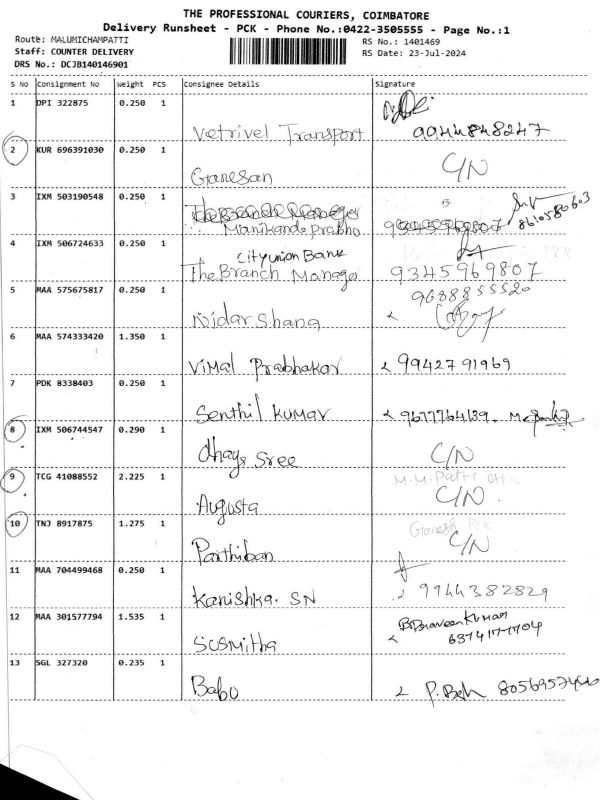 THE PROFESSIONAL COURIERS, COIMBATORE
Delivery Runsheet - PCK - Phone No.:0422-3505555 - Page No.:1
Route: MALUMICHAMPATTI
RS No.: 1401469
Staff: COUNTER DELIVERY
RS Date: 23-Jul-2024
DRS No.: DCJB140146901
S No Consignment No Weight PCS Consignee Details Signature
1 DPI 322875 0.250 1
Vetrivel Transport 9944848247
2 KUR 696391030 0.250 1
Ganesan C/N
3 IXM 503190548 0.250 1
Manikanda Prabhu 8610580603
4 IXM 506724633 0.250 1
City union Bank
The Branch Manage 9345969807
5 MAA 575675817 0.250 1
9688855520
Nidarshana
6 MAA 574333420 1.350 1
Vimal Prabhakar 9942791969
7 PDK 8338403 0.250 1
Senthil Kumar 9677764139
8 IXM 506744547 0.290 1
Sree C/N
9 TCG 41088552 2.225 1
M.M.Patti
Augusta C/N
10 TNJ 8917875 1.275 1
Ganesh Pck
Parthiban C/N
11 MAA 704499468 0.250 1
Kanishka. SN 9944382829
12 MAA 301577794 1.535 1
B.Praveen Kumar
Susmitha
13 SGL 327320 0.235 1
Babu